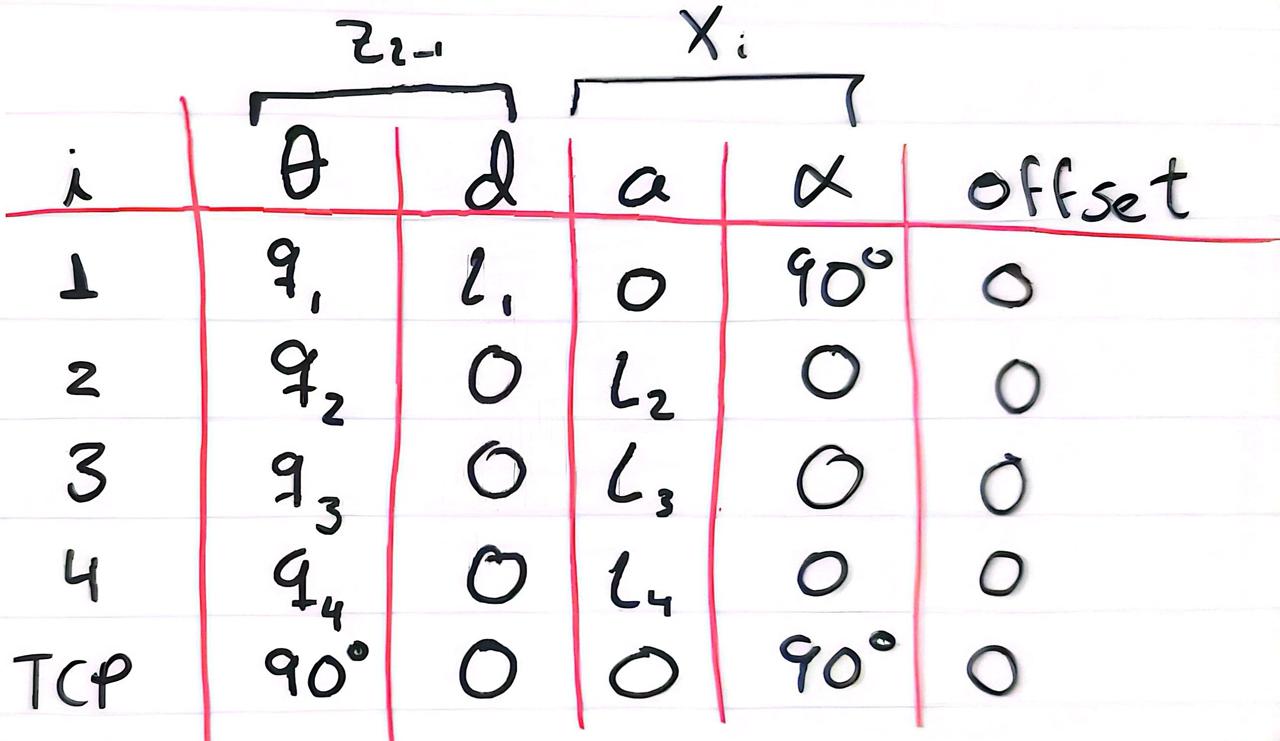 z₂₋₁ xᵢ
i θ d a α offset
1 q₁ l₁ 0 90° 0
2 q₂ 0 l₂ 0 0
3 q₃ 0 l₃ 0 0
4 q₄ 0 l₄ 0 0
TCP 90° 0 0 90° 0